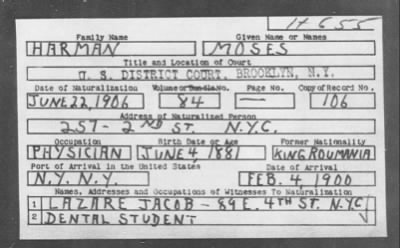 H 655
Family Name Given Name or Names
HARMAN MOSES
Title and Location of Court
U. S. DISTRICT COURT, BROOKLYN, N.Y.
Date of Naturalization Volume or Bundle No. Page No. Copy of Record No.
JUNE 22, 1906 84 — 106
Address of Naturalized Person
257 - 2ND ST. N.Y.C.
Occupation Birth Date or Age Former Nationality
PHYSICIAN JUNE 4 1881 KING ROUMANIA
Port of Arrival in the United States Date of Arrival
N.Y. N.Y. FEB. 4 1900
Names, Addresses and Occupations of Witnesses To Naturalization
1 LAZARE JACOB - 89 E. 4TH ST. N.Y.C.
2 DENTAL STUDENT